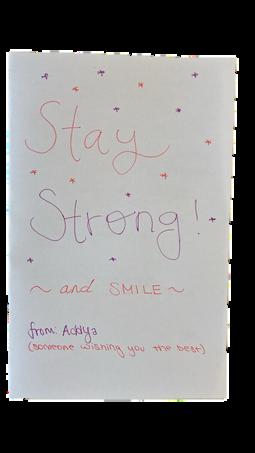 Stay
Strong!
~ and SMILE ~
from: Addya
(someone wishing you the best)